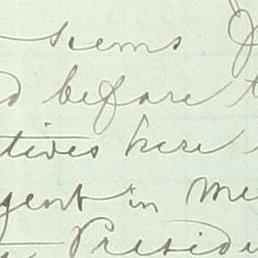 seems
before
tives here
gent in Me
Presid